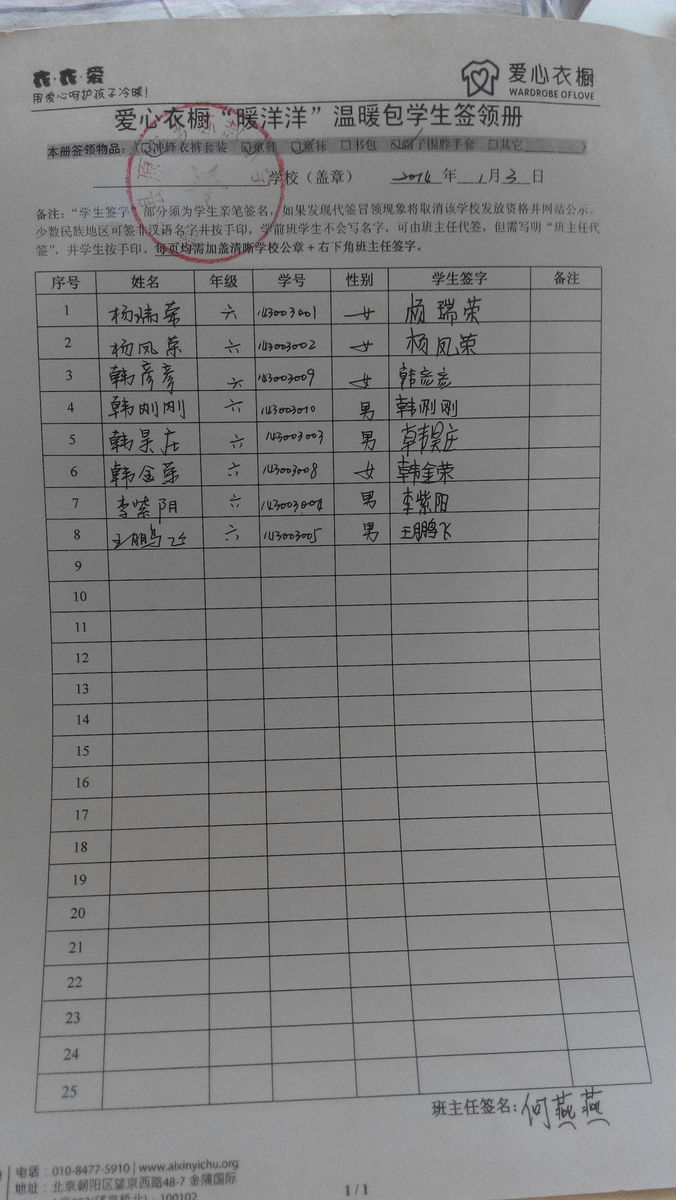 衣·衣·爱
用爱心呵护孩子冷暖!
爱心衣橱
WARDROBE OF LOVE
爱心衣橱“暖洋洋”温暖包学生签领册
本册签领物品:(☑冲锋衣裤套装 ☑童鞋 ☑童袜 □书包 ☑帽子围脖手套 □其它 )
学校(盖章) 2014 年 1 月 3 日
备注:“学生签字”部分须为学生亲笔签名,如果发现代签冒领现象将取消该学校发放资格并网站公示。
少数民族地区可签非汉语名字并按手印,学前班学生不会写名字,可由班主任代签,但需写明“班主任代
签”,并学生按手印。每页均需加盖清晰学校公章+右下角班主任签字。
序号 姓名 年级 学号 性别 学生签字 备注
1 杨瑞荣 六 143003001 女 杨瑞荣
2 杨凤荣 六 143003002 女 杨凤荣
3 韩彦彦 六 143003009 女 韩彦彦
4 韩刚刚 六 143003010 男 韩刚刚
5 韩昊庄 六 143003003 男 韩昊庄
6 韩金荣 六 143003008 女 韩金荣
7 李紫阳 六 143003004 男 李紫阳
8 王鹏飞 六 143003005 男 王鹏飞
9
10
11
12
13
14
15
16
17
18
19
20
21
22
23
24
25
班主任签名:何燕燕
电话:010-8477-5910 | www.aixinyichu.org
地址:北京朝阳区望京西路48-7 金隅国际
100102
1 / 1